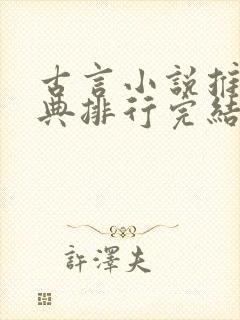 古言小說推
典排行完結
許澤夫